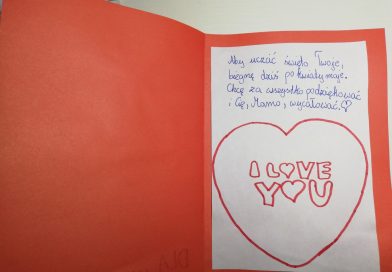 Aby uczcić święto Twoje,
biegnę dziś po kwiaty moje.
Chcę za wszystko podziękować
i Cię, Mamo, wycałować. ♡
I L♡VE
Y♡U
DLA